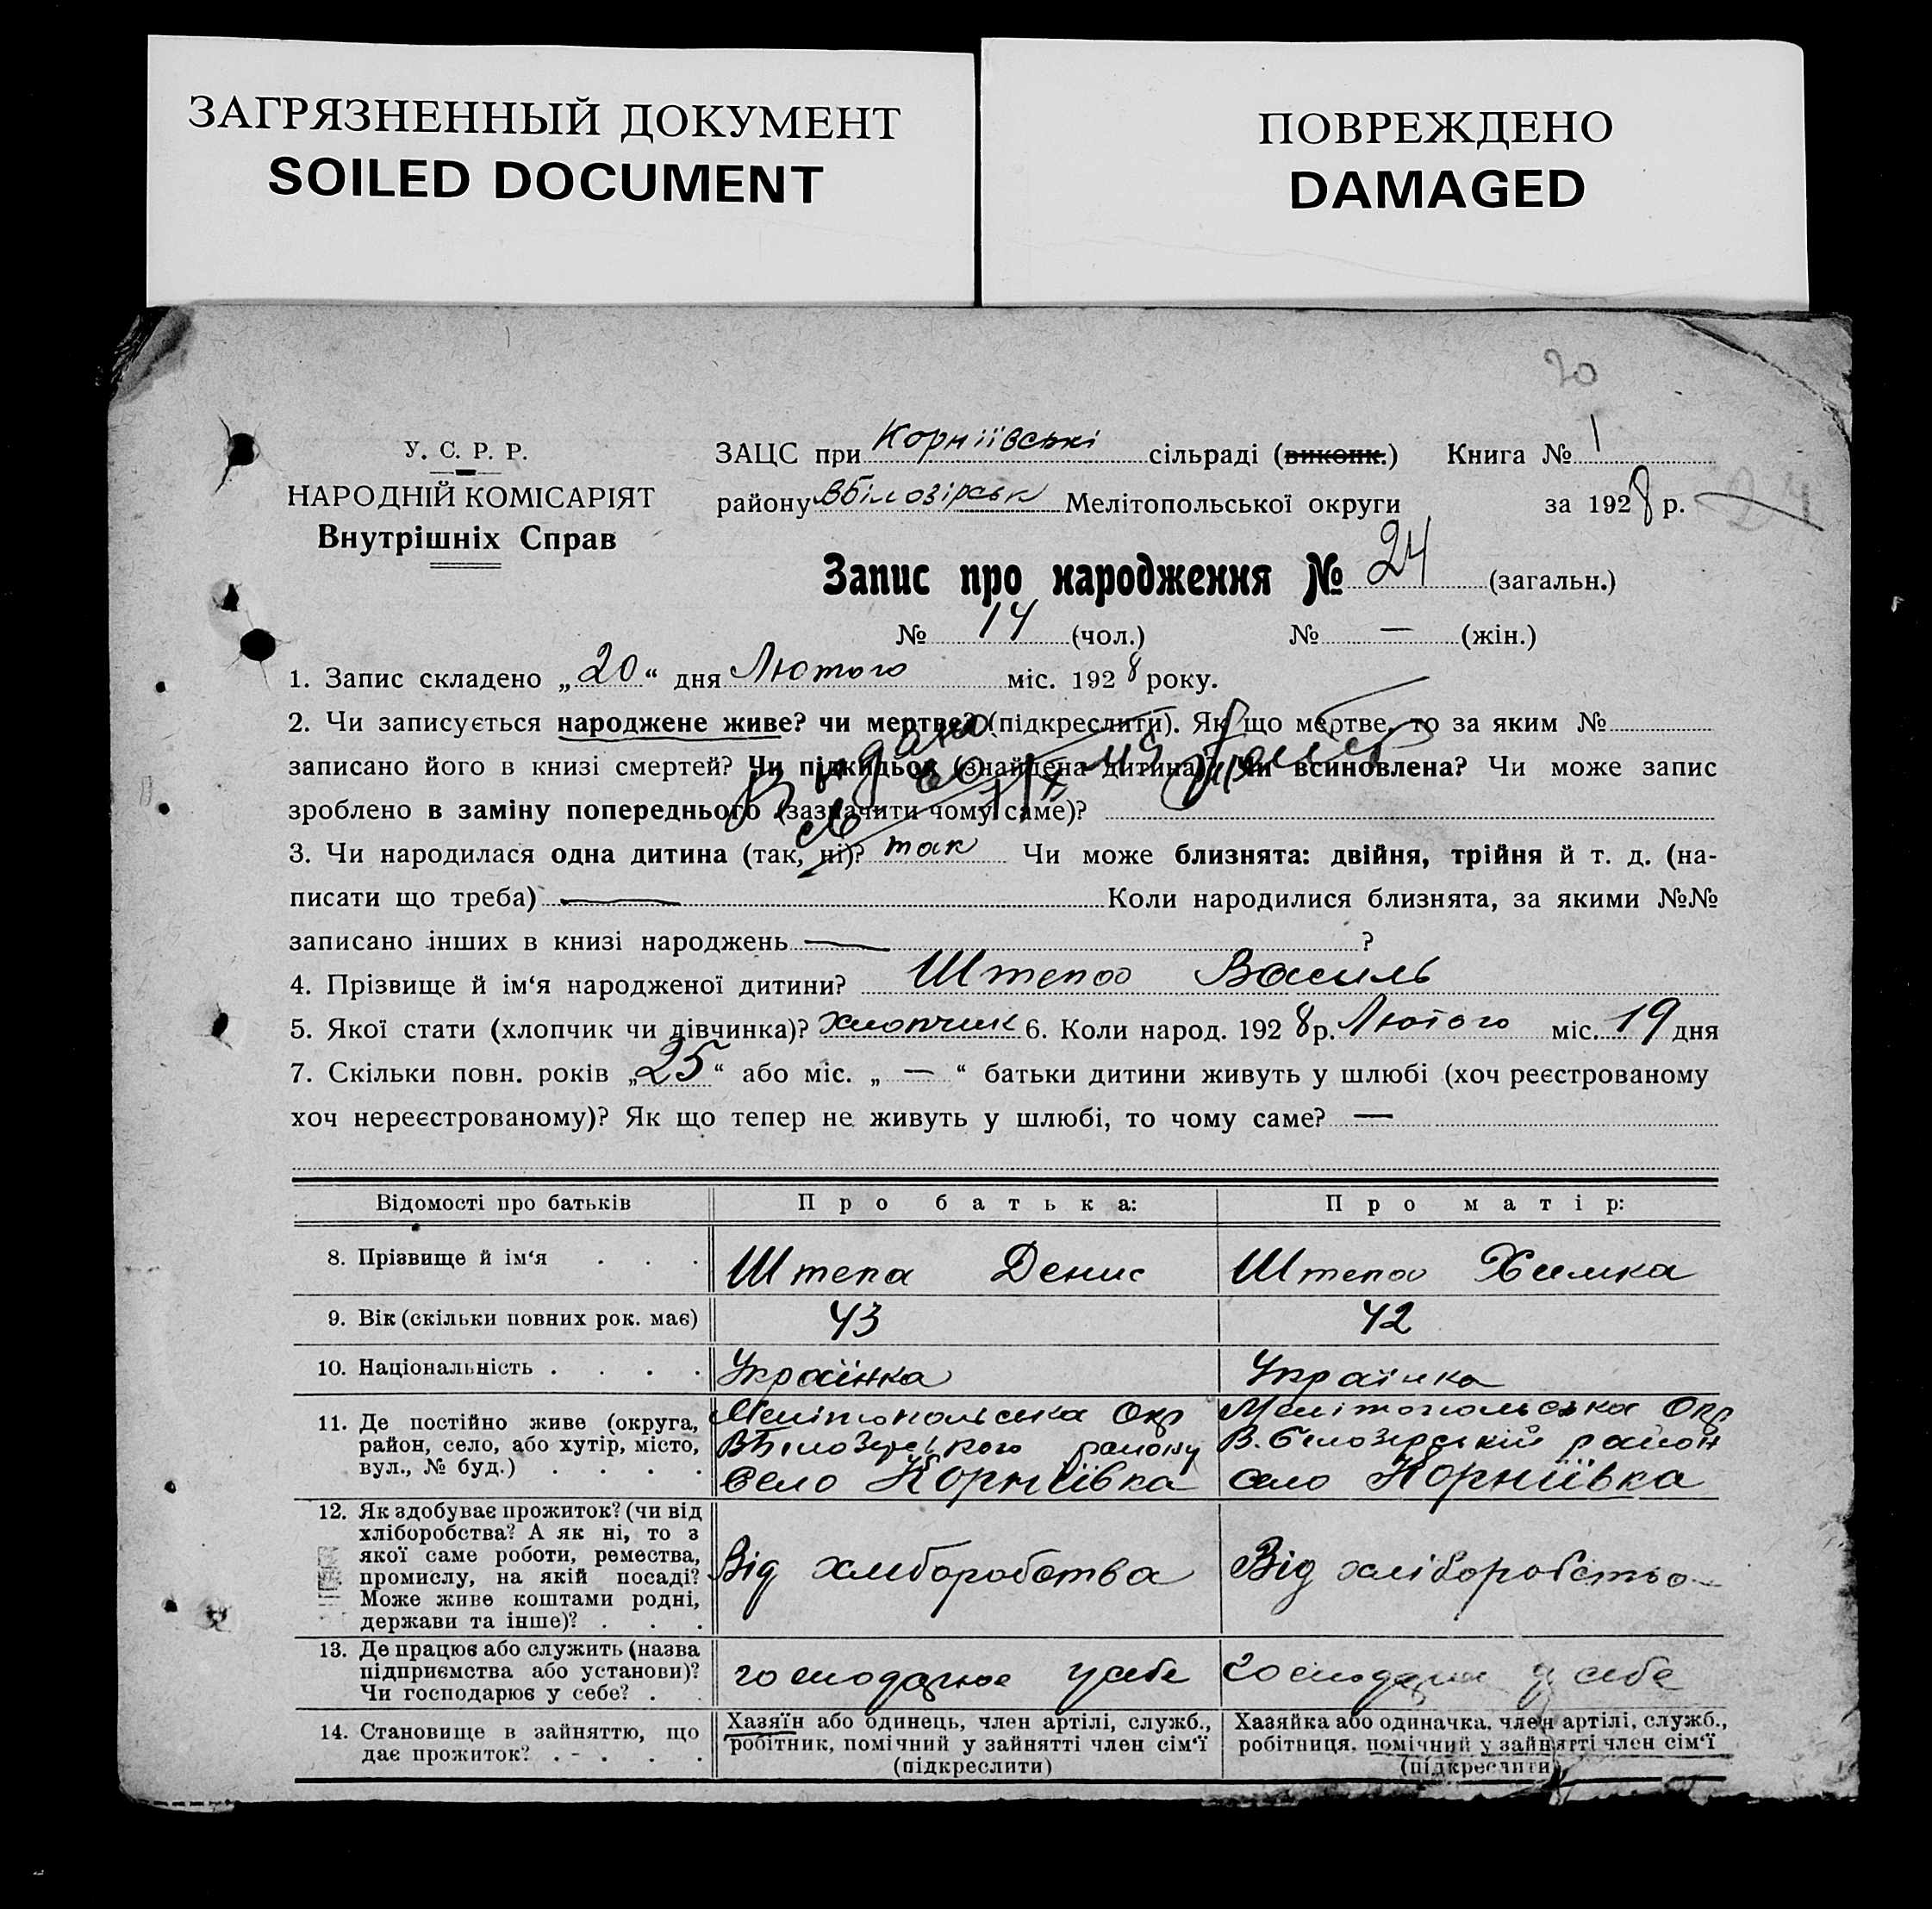 ЗАГРЯЗНЕННЫЙ ДОКУМЕНТ
SOILED DOCUMENT
ПОВРЕЖДЕНО
DAMAGED
20
У. С. Р. Р.
НАРОДНІЙ КОМІСАРІЯТ
Внутрішніх Справ
ЗАЦС при Корніївські сільраді (виконк.) Книга № 1
району ВБілозірськ Мелітопольської округи за 1928 р. 24
Запис про народження № 24 (загальн.)
№ 14 (чол.) № — (жін.)
1. Запис складено „20“ дня Лютого міс. 1928 року.
2. Чи записується народжене живе? чи мертве? (підкреслити). Як що мертве, то за яким №
записано його в книзі смертей? Чи підкидьок (знайдена дитина) Чи всиновлена? Чи може запис
зроблено в заміну попереднього (зазначити чому саме)?
Видано
3. Чи народилася одна дитина (так, ні)? так Чи може близнята: двійня, трійня й т. д. (на-
писати що треба) — Коли народилися близнята, за якими №№
записано інших в книзі народжень — ?
4. Прізвище й ім‘я народженої дитини? Штепа Василь
5. Якої стати (хлопчик чи дівчинка)? хлопчик 6. Коли народ. 1928 р. Лютого міс. 19 дня
7. Скільки повн. років „25“ або міс. „ — “ батьки дитини живуть у шлюбі (хоч реєстрованому
хоч нереєстрованому)? Як що тепер не живуть у шлюбі, то чому саме? —
Відомості про батьків Про батька: Про матір:
8. Прізвище й ім‘я . . . Штепа Денис Штепа Химка
9. Вік (скільки повних рок. має) 43 42
10. Національність . . . . Українка Українка
11. Де постійно живе (округа,
район, село, або хутір, місто,
вул., № буд.) . . . .
Мелітопольська Окр
ВБілозерського району
Село Корніївка
Мелітопольська Окр
В. Білозерський район
село Корніївка
12. Як здобуває прожиток? (чи від
хліборобства? А як ні, то з
якої саме роботи, ремества,
промислу, на якій посаді?
Може живе коштами родні,
держави та інше)? . . .
Від хліборобства
Від хліборобства
13. Де працює або служить (назва
підприємства або установи)?
Чи господарює у себе? . .
господарює у себе
господарює у себе
14. Становище в зайняттю, що
дає прожиток? . - . . .
Хазяїн або одинець, член артілі, служб.,
робітник, помічний у зайнятті член сім‘ї
(підкреслити)
Хазяйка або одиначка, член артілі, служб.,
робітниця, помічний у зайнятті член сім‘ї
(підкреслити)